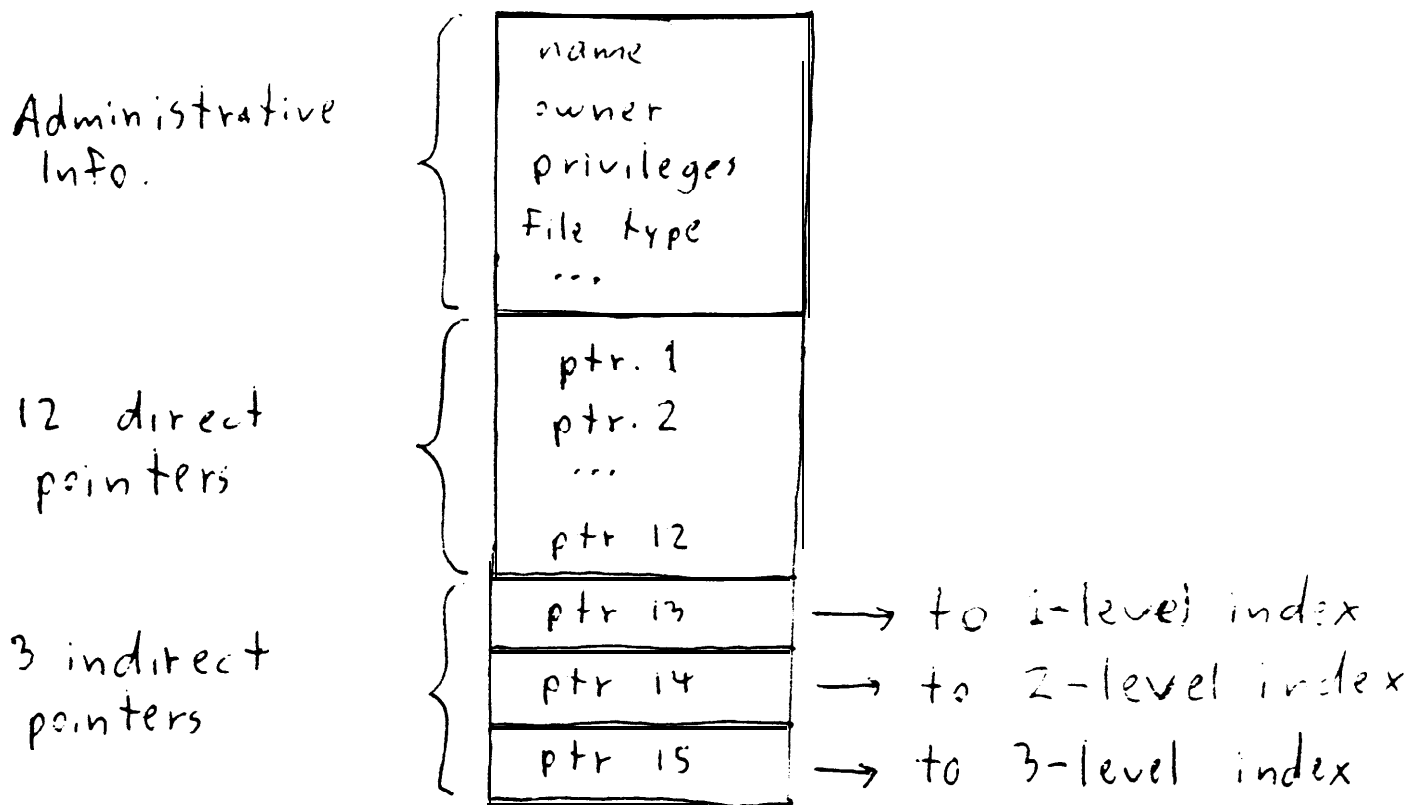 Administrative
Info.
name
owner
privileges
File type
...
12 direct
pointers
ptr. 1
ptr. 2
...
ptr 12
3 indirect
pointers
ptr 13 → to 1-level index
ptr 14 → to 2-level index
ptr 15 → to 3-level index